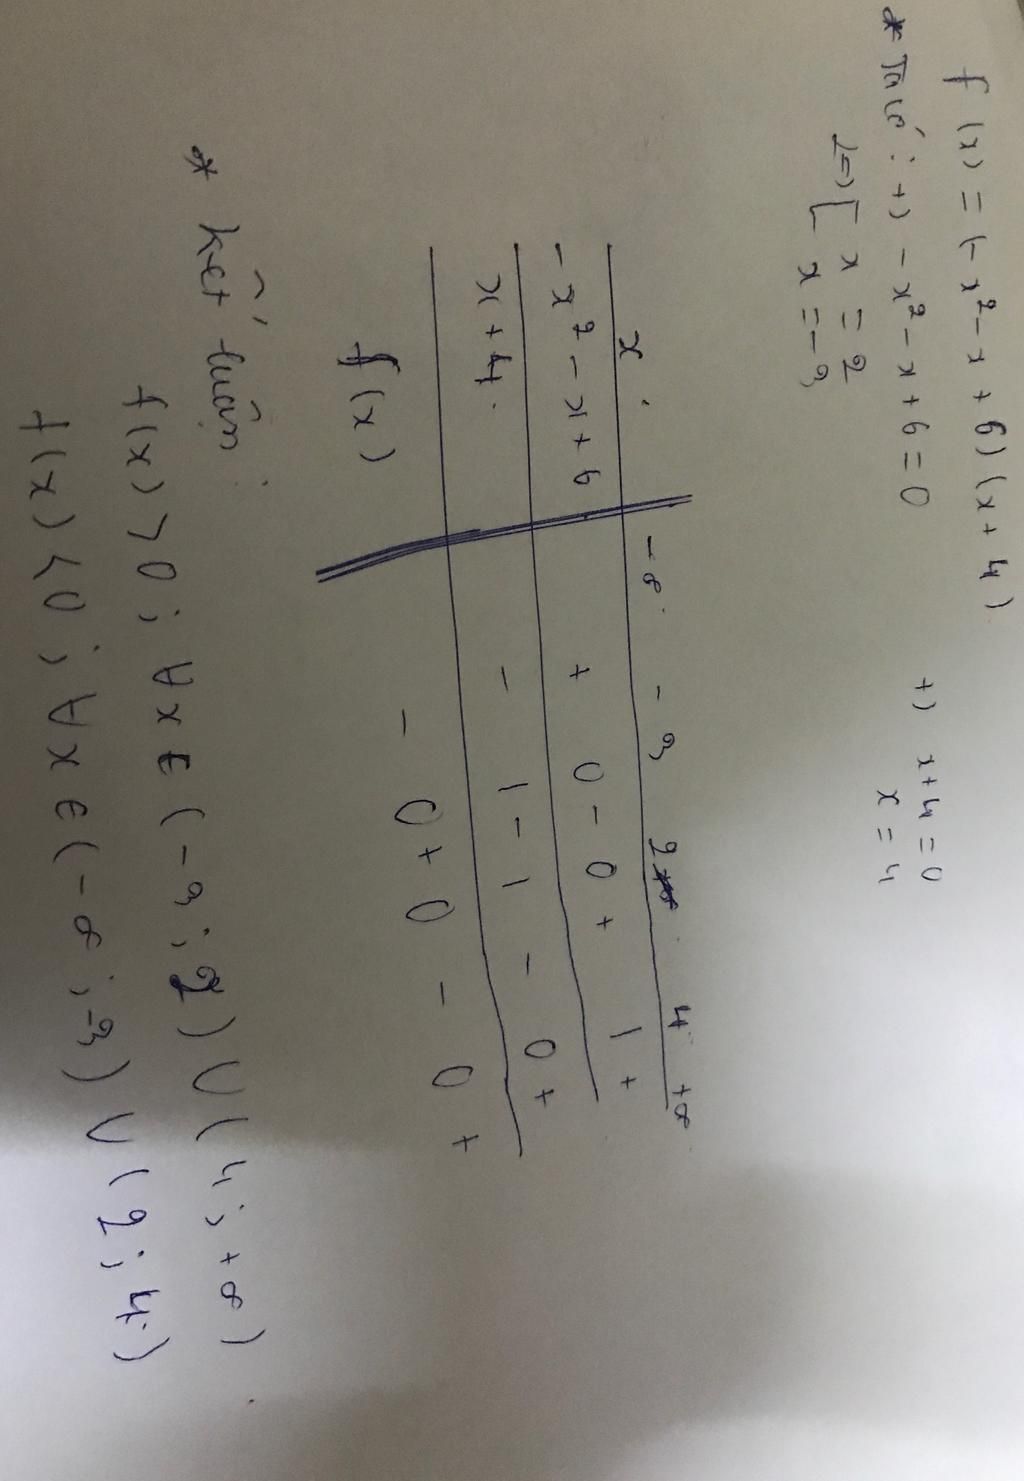 f(x) = (-x² - x + 6)(x + 4)
* Ta có: +) -x² - x + 6 = 0
+) x + 4 = 0
<=> [ x = 2
x = -3
x = 4
x -∞ -3 2 4 +∞
-x² - x + 6 + 0 - 0 + | +
x + 4 - | - | - 0 +
f(x) - 0 + 0 - 0 +
* Kết luận:
f(x) > 0; ∀x ∈ (-3; 2) ∪ (4; +∞)
f(x) < 0; ∀x ∈ (-∞; -3) ∪ (2; 4)